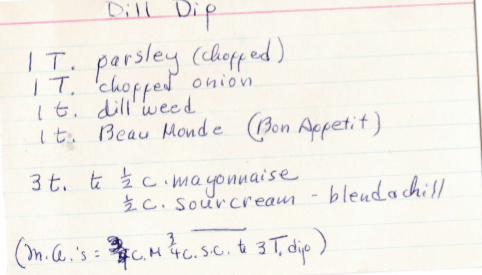 Dill Dip
1 T. parsley (chopped)
1 T. chopped onion
1 t. dill weed
1 t. Beau Monde (Bon Appetit)
3 t. to ½ c. mayonnaise
½ c. sour cream - blend & chill
(M.A.'s = c. M ¾ c. s.c. to 3 T. dip)